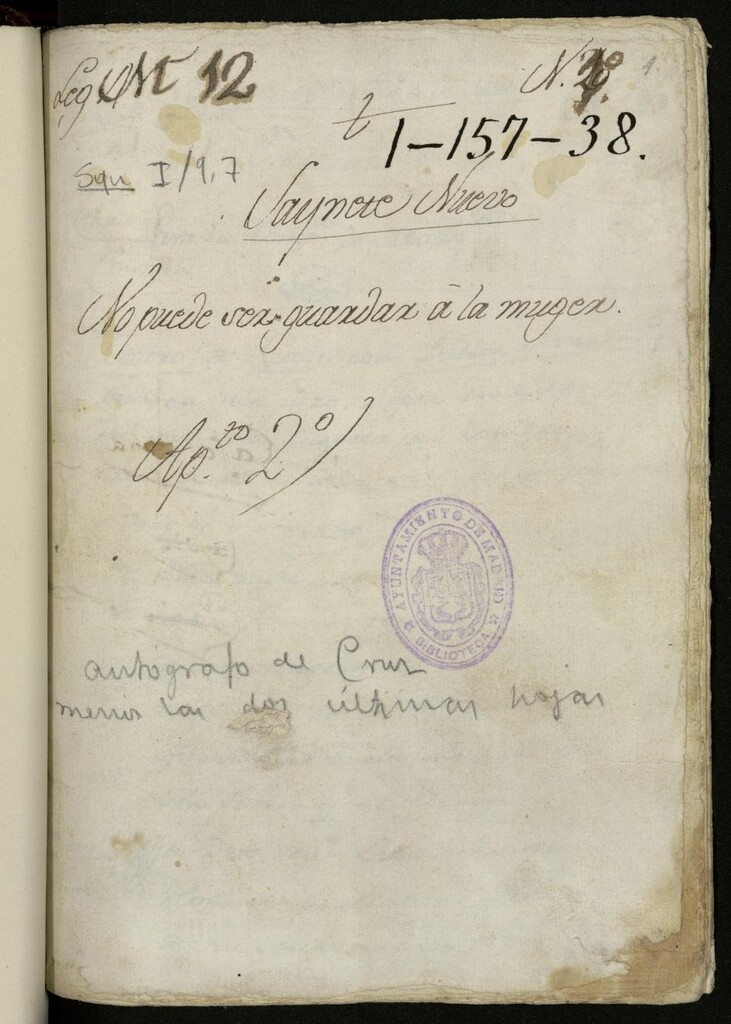 Leg 12
N. 1
t 1-157-38.
Squ I/9,7
Saynete Nuevo
No puede ser guardar á la muger.
Ap.to 2º
AYUNTAMIENTO DE MADRID
BIBLIOTECA
autógrafo de Cruz
menos las dos últimas hojas